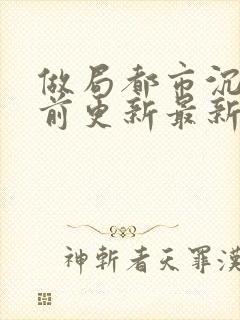 做局都市沉
前更新最新
神斩者天罪漢